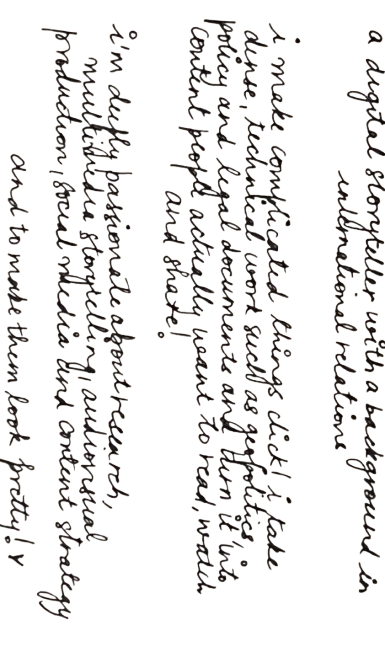 a digital storyteller with a background in
international relations
i make complicated things click! i take
dense, technical work such as geopolitics,
policy and legal documents and turn it into
content people actually want to read, watch
and share!
i'm deeply passionate about research,
multimedia storytelling, audiovisual
production, social media and content strategy
and to make them look pretty!